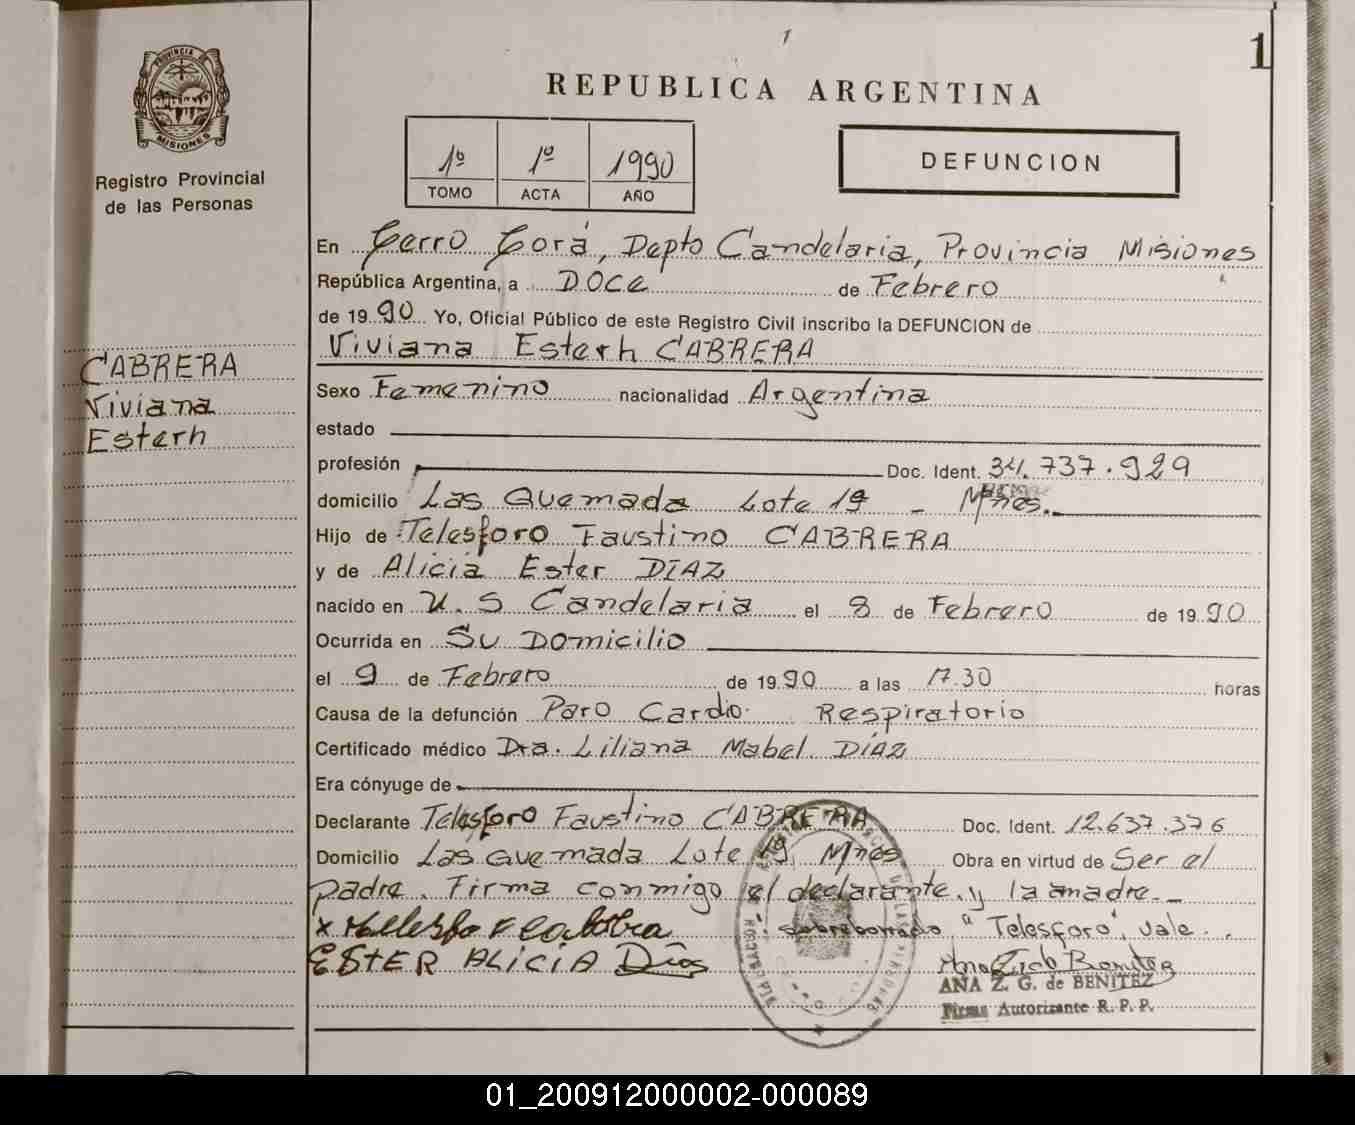 1
REPUBLICA ARGENTINA
1º 1º 1990
TOMO ACTA AÑO
DEFUNCION
PROVINCIA DE MISIONES
Registro Provincial
de las Personas
CABRERA
Viviana
Esterh
En Cerro Corá, Depto Candelaria, Provincia Misiones
República Argentina, a DOCE de Febrero
de 1990 Yo, Oficial Público de este Registro Civil inscribo la DEFUNCION de
Viviana Esterh CABRERA
Sexo Femenino nacionalidad Argentina
estado
profesión Doc. Ident. 34.737.929
domicilio Las Quemada Lote 19 - Mnes.
Hijo de Telesforo Faustino CABRERA
y de Alicia Ester DIAZ
nacido en U.S Candelaria el 8 de Febrero de 1990
Ocurrida en Su Domicilio
el 9 de Febrero de 1990 a las 17.30 horas
Causa de la defunción Paro Cardio Respiratorio
Certificado médico Dra. Liliana Mabel DÍAZ
Era cónyuge de
Declarante Telesforo Faustino CABRERA Doc. Ident. 12.637.376
Domicilio Las Quemada Lote 19, Mnes Obra en virtud de Ser el
padre. Firma conmigo el declarante, y la madre.-
sobreborrado "Telesforo", vale.
ESTER ALICIA Días
ANA Z. G. de BENITEZ
Firma Autorizante R. P. P.
01_200912000002-000089